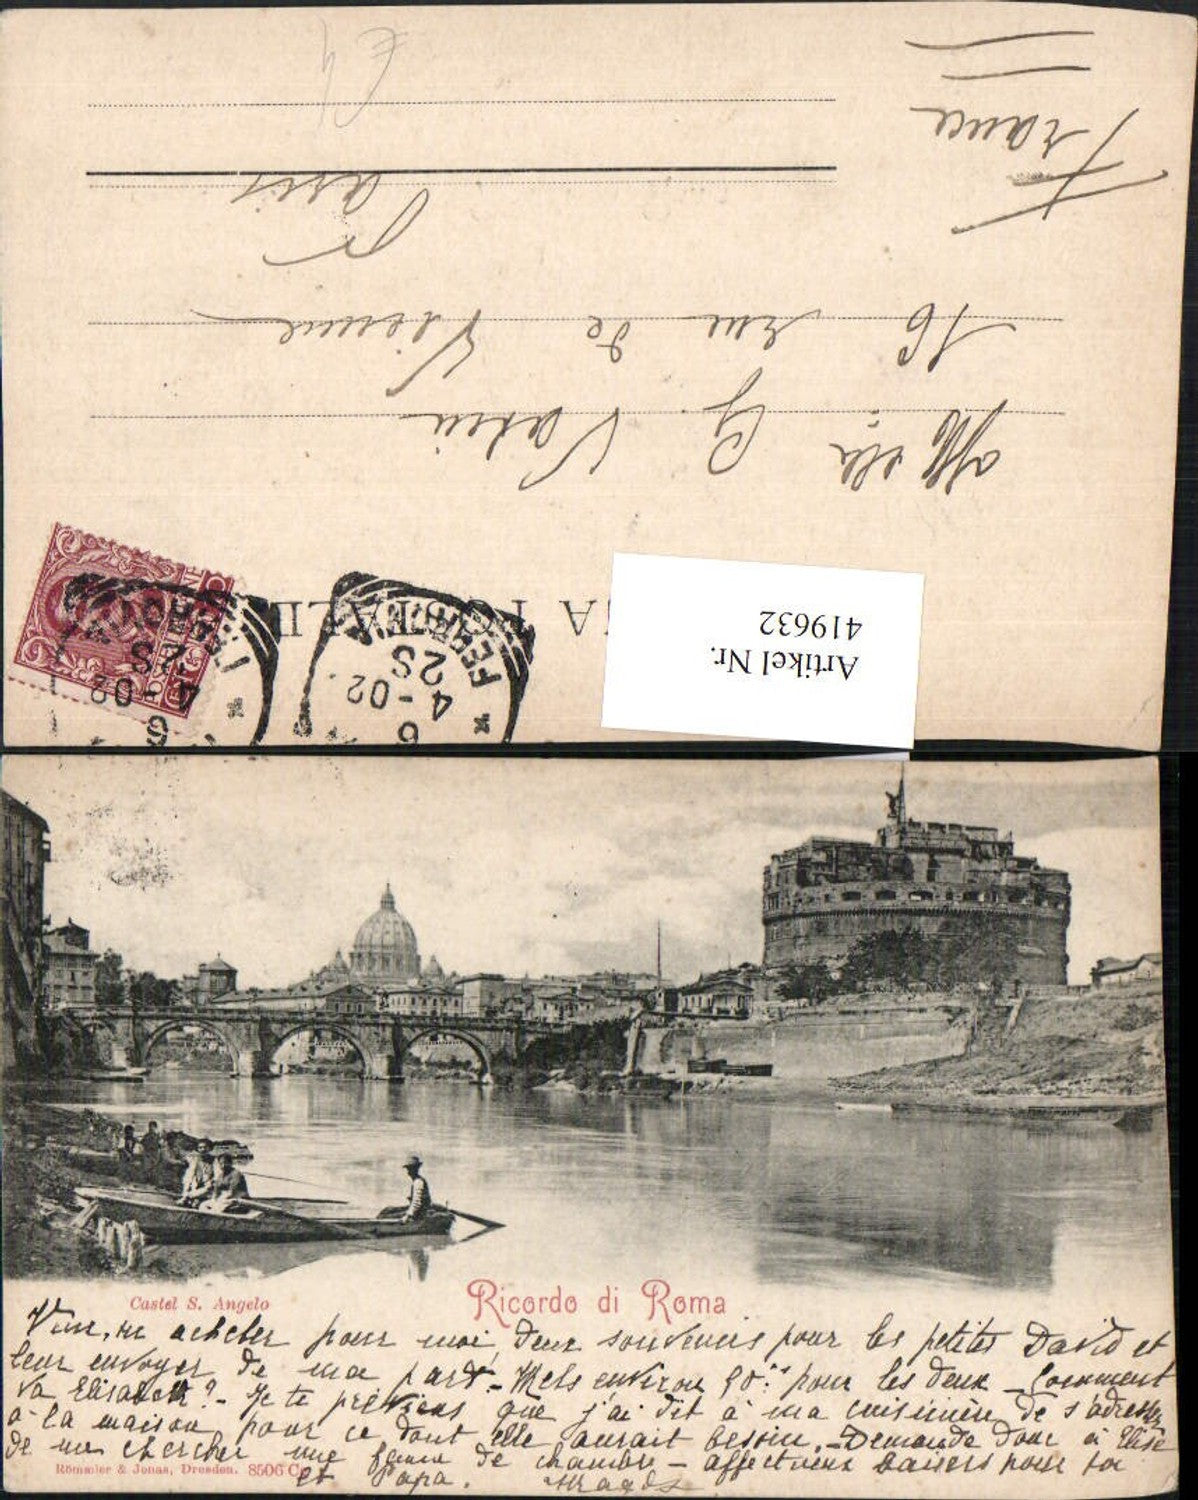 France
Paris
16 rue de Vienne
G. Varin
Artikel Nr.
419632
4-02
2S
6
4-02
2S
Castel S. Angelo
Ricordo di Roma
acheter pour moi deux souvenirs pour les petites David et
leur envoyer de ma part. - Mets environ pour les deux - Comment
va Elisabeth? - Je te préviens que j'ai dit à ma cuisinière de s'adresser
à la maison pour ce dont elle aurait besoin. - Demande donc à Elise
de me chercher une femme de chambre - affectueux baisers pour toi
et Papa.
Römmler & Jonas, Dresden. 8506 C